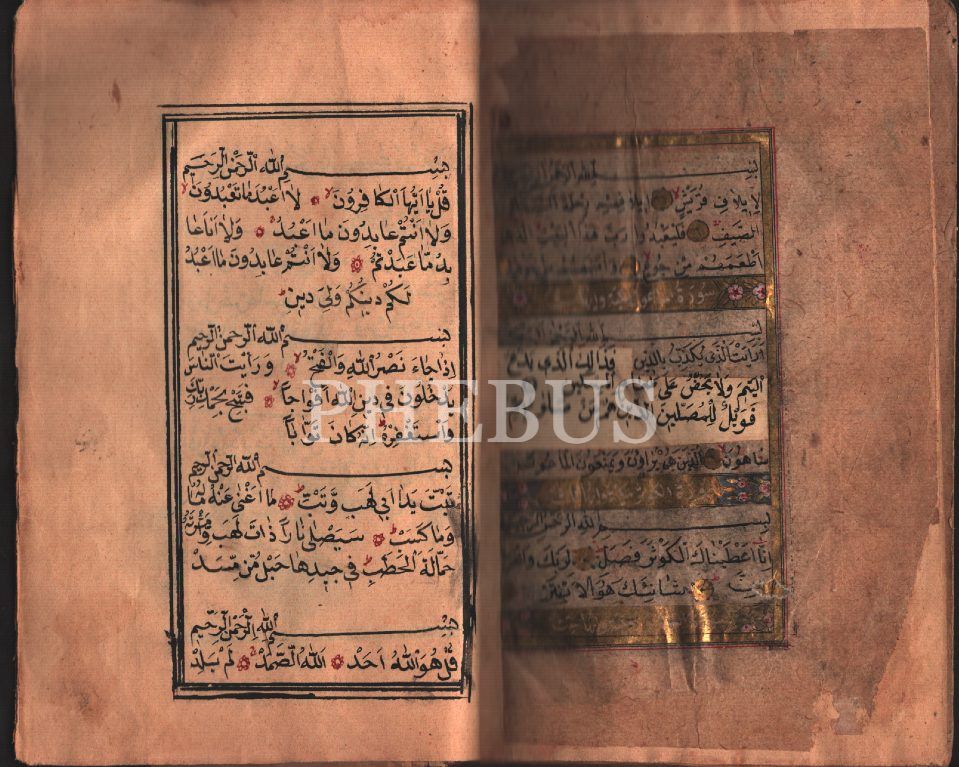 بسم الله الرحمن الرحيم
لايلاف قريش ايلافهم رحلة الشتاء
الصيف فليعبدوا رب هذا البيت الذي
اطعمهم من جوع
سورة
بسم الله الرحمن الرحيم
ارايت الذي يكذب بالدين فذالك الذي يدع
اليتيم ولا يحض على
فويل للمصلين الذين هم عن
ساهون الذين هم يراون ويمنعون الماعون
بسم الله الرحمن الرحيم
انا اعطيناك الكوثر فصل لربك وانحر
شانئك هو الابتر
بسم الله الرحمن الرحيم
قل يا ايها الكافرون لا اعبد ما تعبدون
ولا انتم عابدون ما اعبد ولا انا عا
بد ما عبدتم ولا انتم عابدون ما اعبد
لكم دينكم ولي دين
بسم الله الرحمن الرحيم
اذا جاء نصر الله والفتح ورايت الناس
يدخلون في دين الله افواجا فسبح بحمد ربك
واستغفره انه كان توابا
بسم الله الرحمن الرحيم
تبت يدا ابي لهب وتبت ما اغنى عنه ماله
وما كسب سيصلى نارا ذات لهب وامراته
حمالة الحطب في جيدها حبل من مسد
بسم الله الرحمن الرحيم
قل هو الله احد الله الصمد لم يلد
PHEBUS